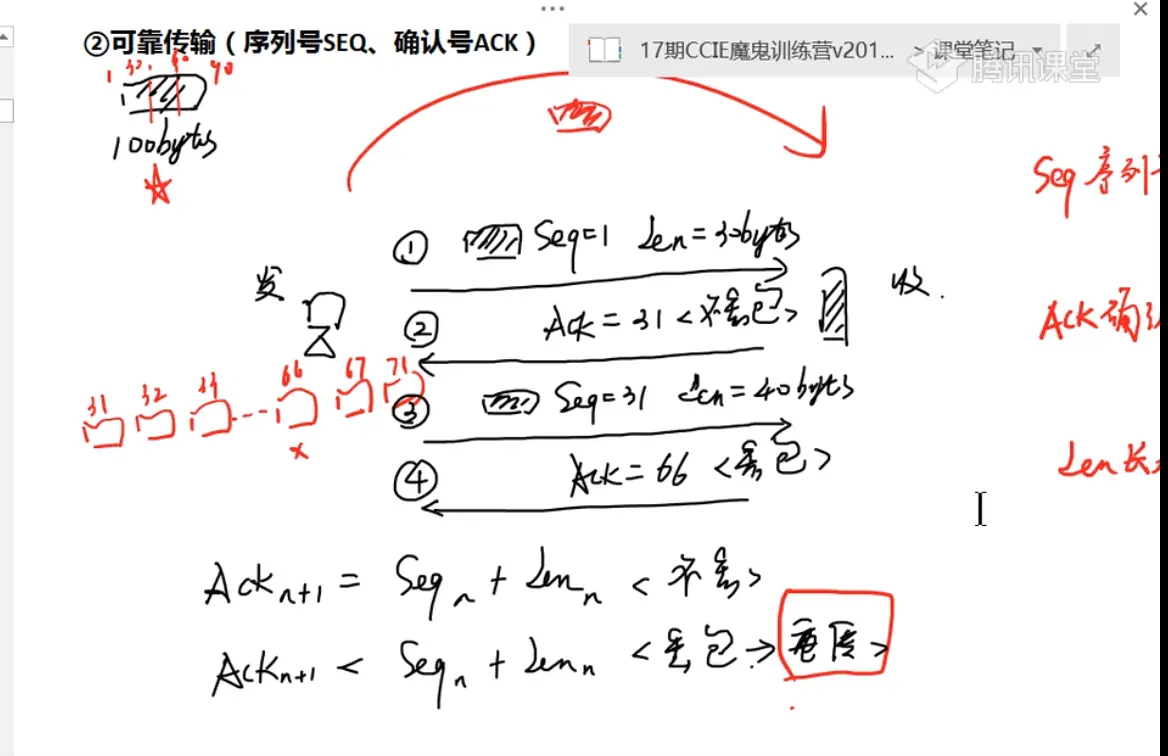 ②可靠传输（序列号SEQ、确认号ACK）
17期CCIE魔鬼训练营v201... > 课堂笔记
腾讯课堂
1
100bytes
Seq 序列
① Seq=1 Len=30bytes
发
收
② Ack=31 <不丢包>
Ack 确认
31 32 33 --- 66 67 71
×
③ Seq=31 Len=40bytes
④ Ack=66 <丢包>
Len 长
Ackn+1 = Seqn + Lenn <不丢>
Ackn+1 < Seqn + Lenn <丢包→重传>